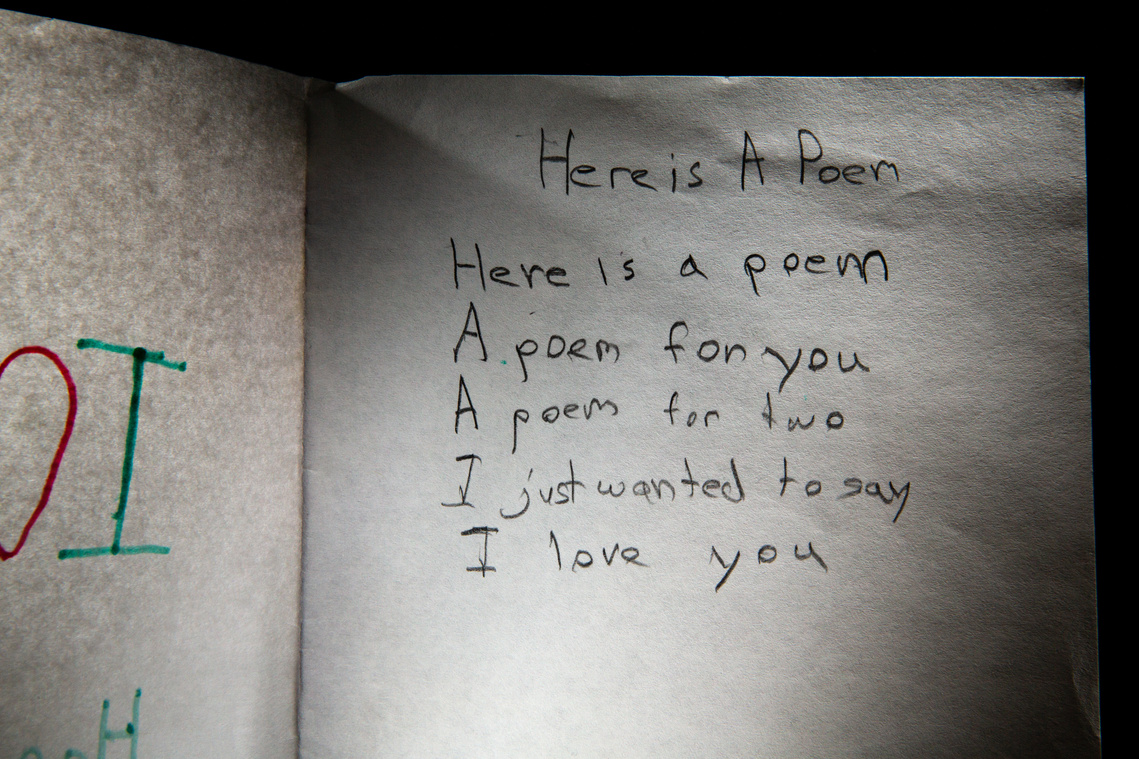 Here is A Poem
Here is a poem
A poem for you
A poem for two
I just wanted to say
I love you
I